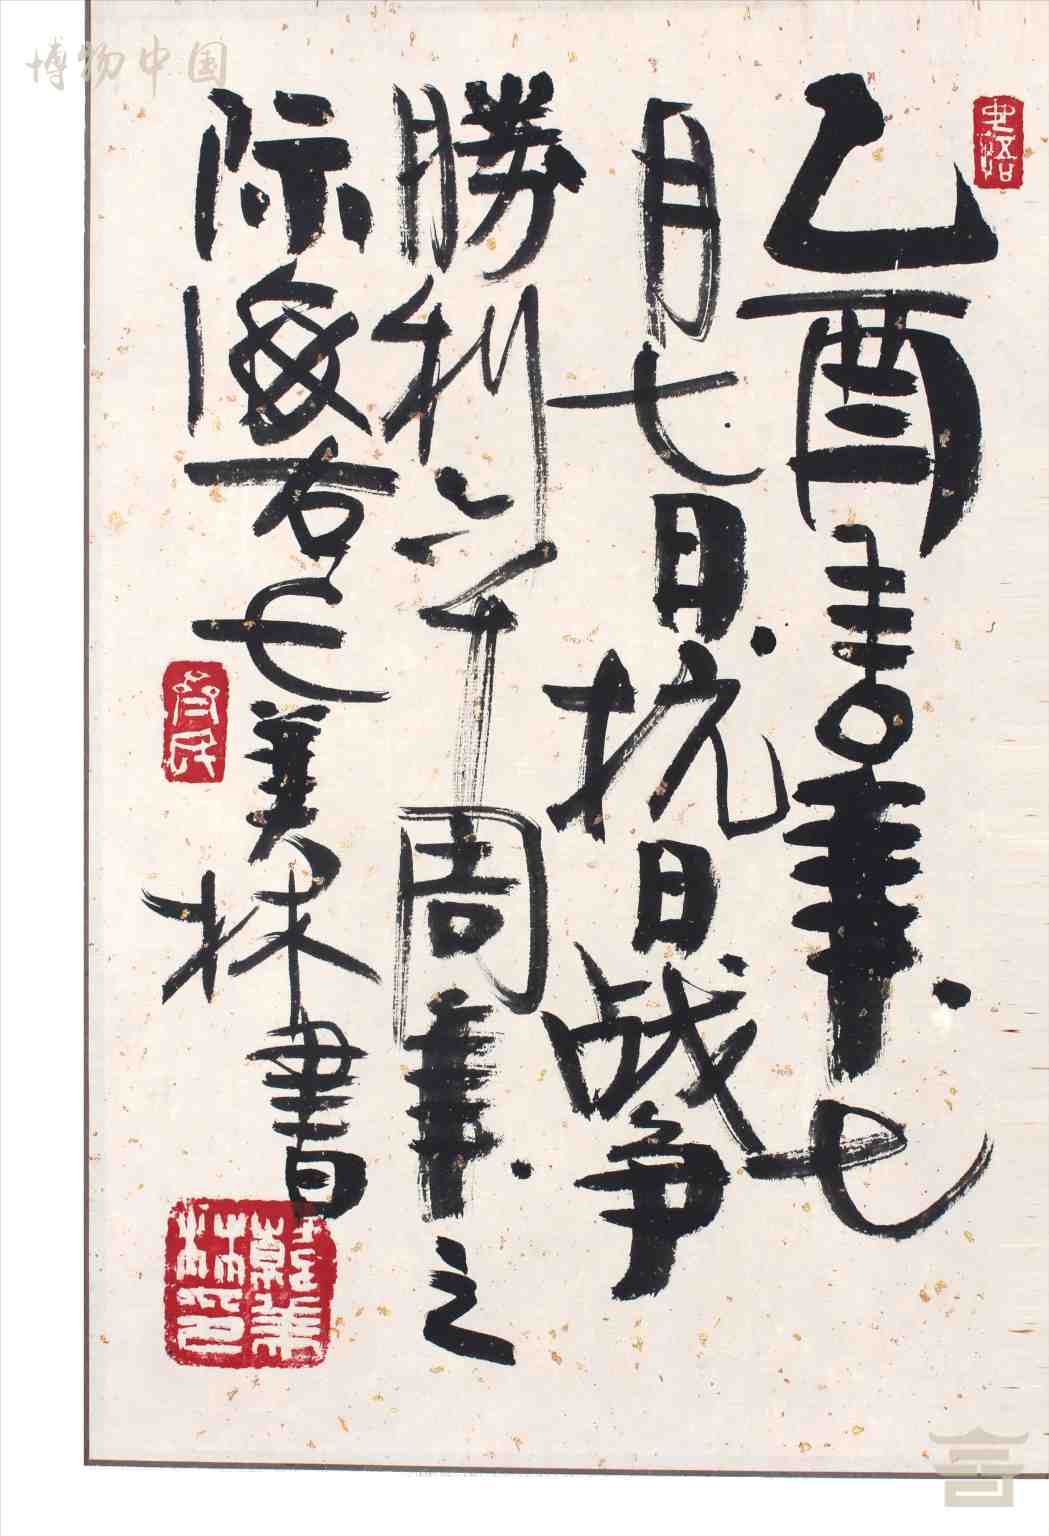 乙酉吉年七
月七日抗日战争
勝利六十周年之
际海右七美林書
韩美林印
博物中国